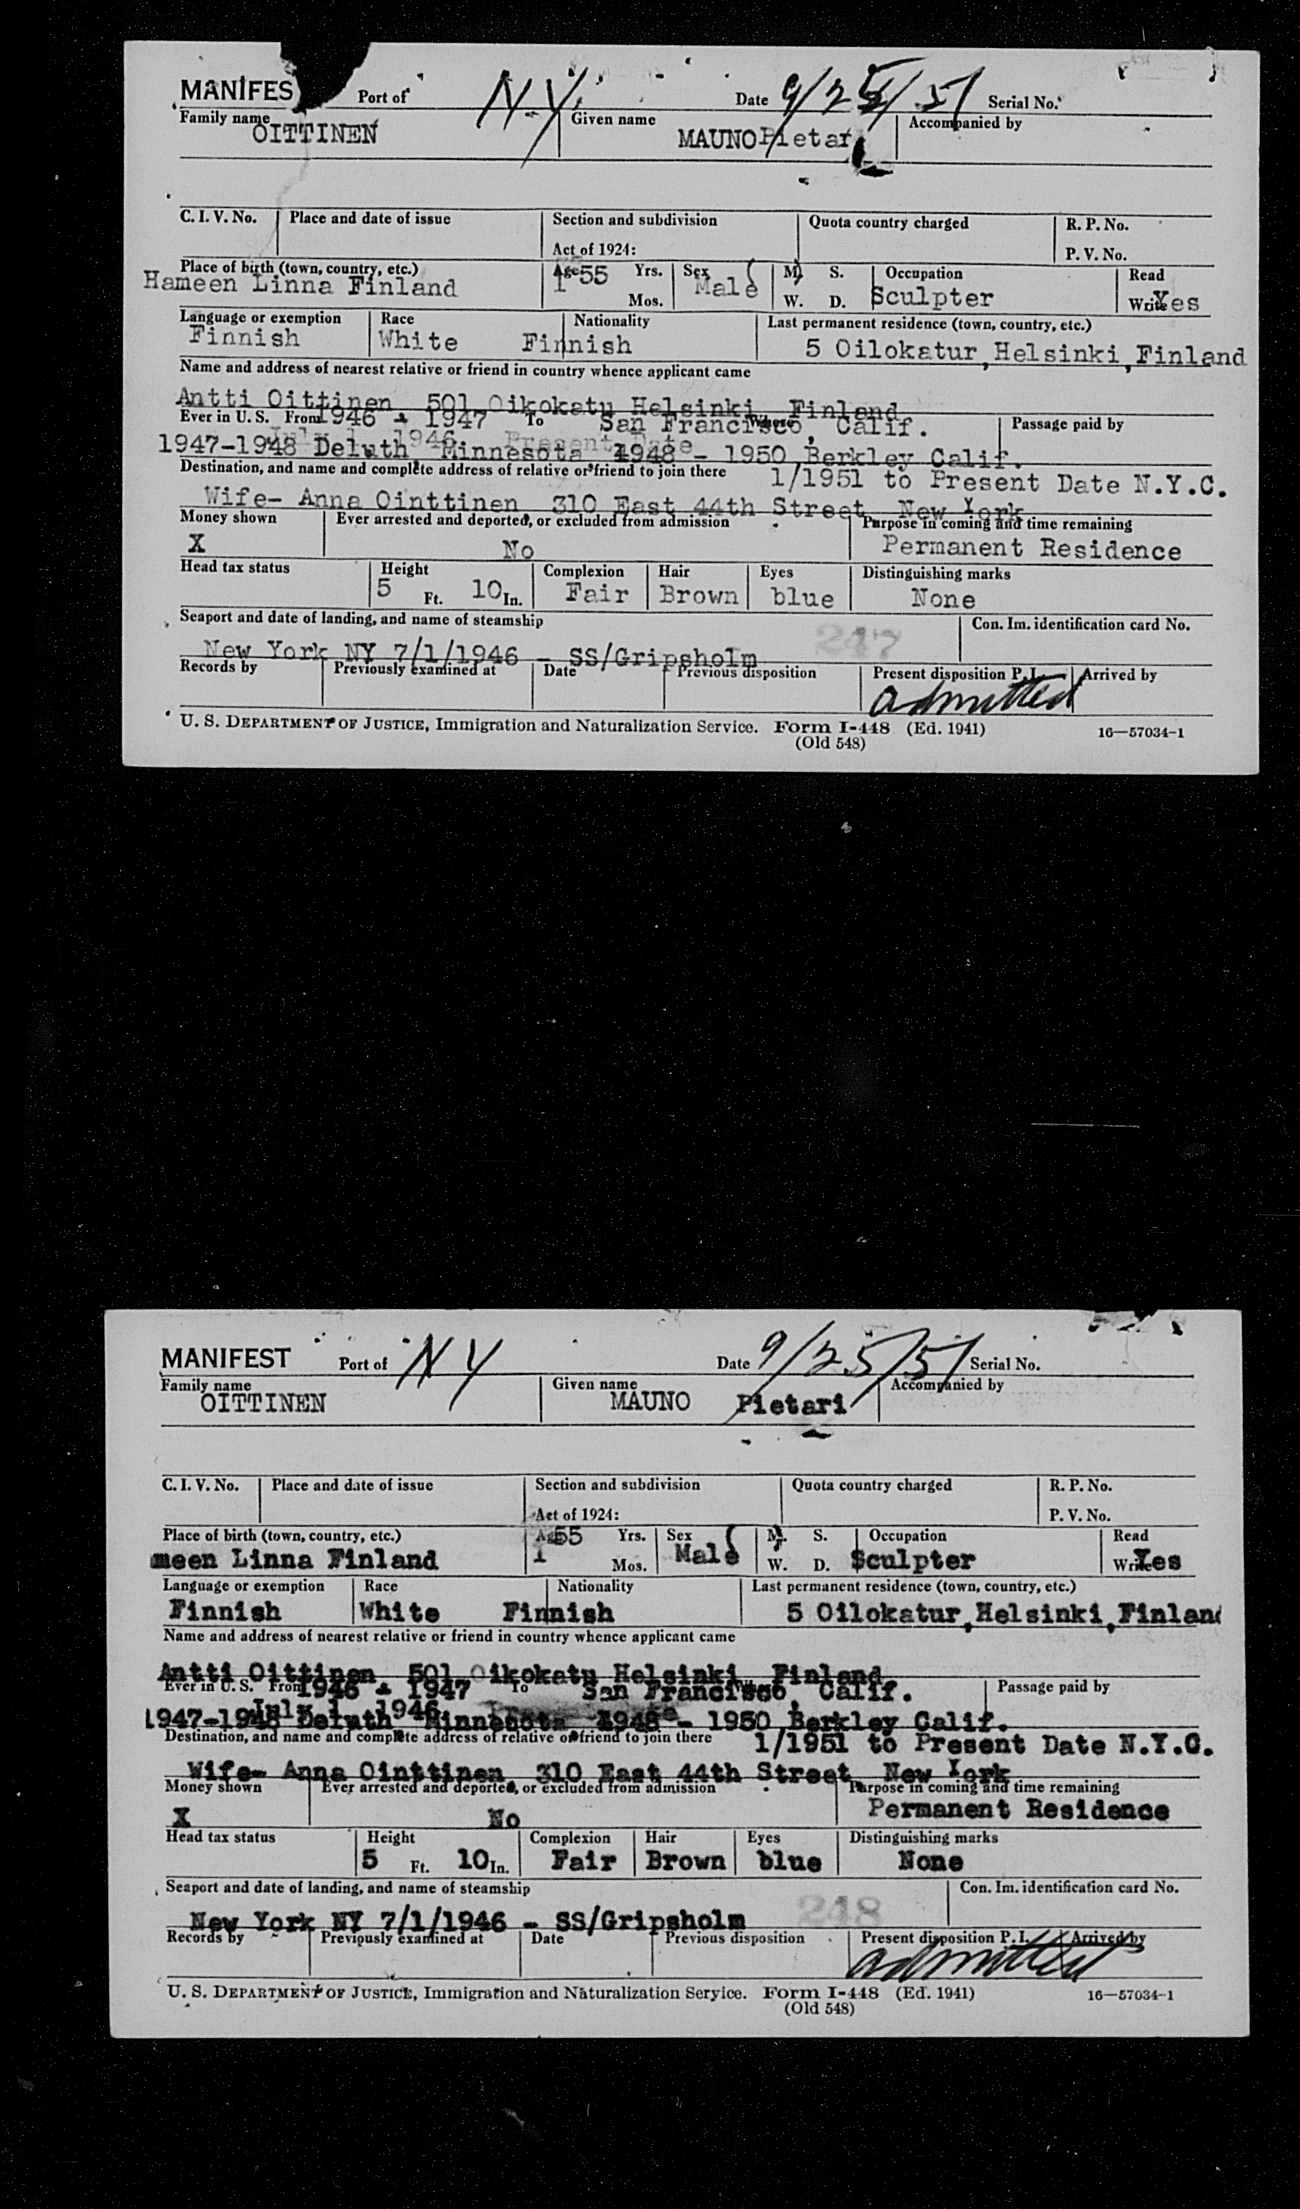 MANIFES Port of N.Y. Date 9/25/51 Serial No.
Family name Given name Accompanied by
OITTINEN MAUNO Pietari
C. I. V. No. Place and date of issue Section and subdivision Quota country charged R. P. No.
Act of 1924: P. V. No.
Place of birth (town, country, etc.) Age 55 Yrs. Sex M. S. Occupation Read
Hameen Linna Finland 1 Mos. Male W. D. Sculpter Write Yes
Language or exemption Race Nationality Last permanent residence (town, country, etc.)
Finnish White Finnish 5 Oilokatur, Helsinki, Finland
Name and address of nearest relative or friend in country whence applicant came
Antti Oittinen 501 Oikokatu Helsinki, Finland
Ever in U. S. From 1946 - 1947 To San Francisco, Calif. Passage paid by
1947-1948 Deluth Minnesota 1948 - 1950 Berkley Calif.
Destination, and name and complete address of relative or friend to join there 1/1951 to Present Date N.Y.C.
Wife- Anna Ointtinen 310 East 44th Street, New York
Money shown Ever arrested and deported, or excluded from admission Purpose in coming and time remaining
X No Permanent Residence
Head tax status Height Complexion Hair Eyes Distinguishing marks
5 Ft. 10 In. Fair Brown blue None
Seaport and date of landing, and name of steamship 247 Con. Im. identification card No.
New York NY 7/1/1946 - SS/Gripsholm
Records by Previously examined at Date Previous disposition Present disposition P. I. Arrived by
admitted
U. S. DEPARTMENT OF JUSTICE, Immigration and Naturalization Service. Form I-448 (Ed. 1941) 16—57034-1
(Old 548)
MANIFEST Port of N Y Date 9/25/51 Serial No.
Family name Given name Accompanied by
OITTINEN MAUNO Pietari
C. I. V. No. Place and date of issue Section and subdivision Quota country charged R. P. No.
Act of 1924: P. V. No.
Place of birth (town, country, etc.) Age 55 Yrs. Sex M. S. Occupation Read
meen Linna Finland 1 Mos. Male W. D. Sculpter Write Yes
Language or exemption Race Nationality Last permanent residence (town, country, etc.)
Finnish White Finnish 5 Oilokatur, Helsinki, Finlan
Name and address of nearest relative or friend in country whence applicant came
Antti Oittinen 501 Oikokatu Helsinki, Finland
Ever in U. S. From 1946 - 1947 To San Francisco, Calif. Passage paid by
1947-1948 Deluth Minnesota 1948 - 1950 Berkley Calif.
Destination, and name and complete address of relative or friend to join there 1/1951 to Present Date N.Y.C.
Wife- Anna Ointtinen 310 East 44th Street, New York
Money shown Ever arrested and deported, or excluded from admission Purpose in coming and time remaining
X No Permanent Residence
Head tax status Height Complexion Hair Eyes Distinguishing marks
5 Ft. 10 In. Fair Brown blue None
Seaport and date of landing, and name of steamship 248 Con. Im. identification card No.
New York NY 7/1/1946 - SS/Gripsholm
Records by Previously examined at Date Previous disposition Present disposition P. I. Arrived by
admitted
U. S. DEPARTMENT OF JUSTICE, Immigration and Naturalization Service. Form I-448 (Ed. 1941) 16—57034-1
(Old 548)